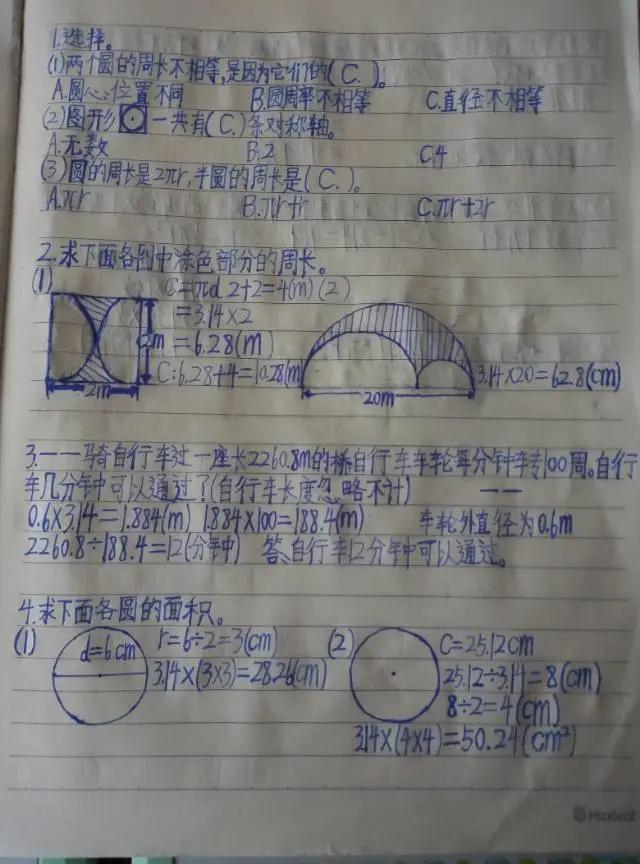 1.选择。
(1)两个圆的周长不相等,是因为它们的(C.)。
A.圆心位置不同 B.圆周率不相等 C.直径不相等
(2)图形 一共有(C.)条对称轴。
A.无数 B.2 C.4
(3)圆的周长是2πr,半圆的周长是(C.)。
A.πr B.πr+r C.πr+2r
2.求下面各图中涂色部分的周长。
(1) C=πd 2+2=4(m) (2)
=3.14×2
=6.28(m)
2m
C:6.28+4=10.28(m)
2m
20m
3.14×20=62.8(cm)
3.一一骑自行车过一座长2260.8m的桥自行车车轮每分钟转100周。自行
车几分钟可以通过?(自行车长度忽略不计)
0.6×3.14=1.884(m) 1.884×100=188.4(m) 车轮外直径为0.6m
2260.8÷188.4=12(分钟) 答:自行车12分钟可以通过。
4.求下面各圆的面积。
(1) d=6cm r=6÷2=3(cm) (2) C=25.12cm
3.14×(3×3)=28.26(cm) 25.12÷3.14=8(cm)
8÷2=4(cm)
3.14×(4×4)=50.24(cm²)
Maxleaf